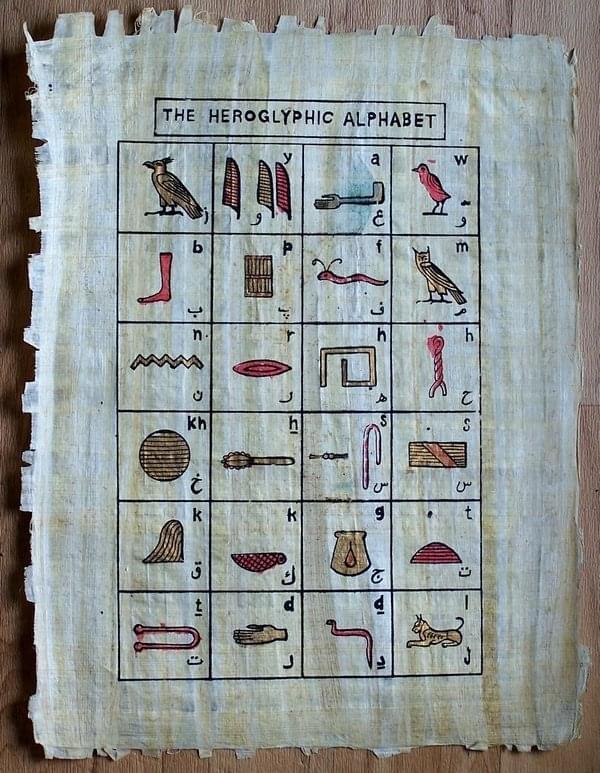 THE HEROGLYPHIC ALPHABET
y a w
و ع و
b p f m
ب پ ف م
n r h h
ن ر ه ح
kh ẖ s s
خ س س
k k g t
ق ك ج ت
ṯ d ḏ l
ت ل